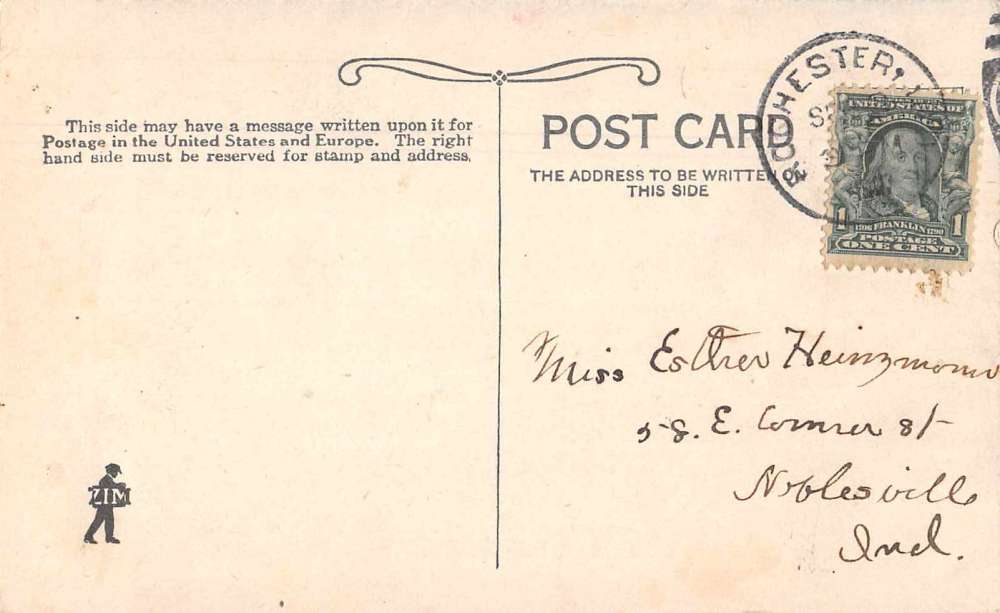 This side may have a message written upon it for
Postage in the United States and Europe. The right
hand side must be reserved for stamp and address.
POST CARD
THE ADDRESS TO BE WRITTEN ON
THIS SIDE
ROCHESTER,
UNITED STATES OF
AMERICA
1 1
1706 FRANKLIN 1790
POSTAGE
ONE CENT
Miss Esther Heinzmann
E. Conner St
Noblesville
Ind.
ZIM